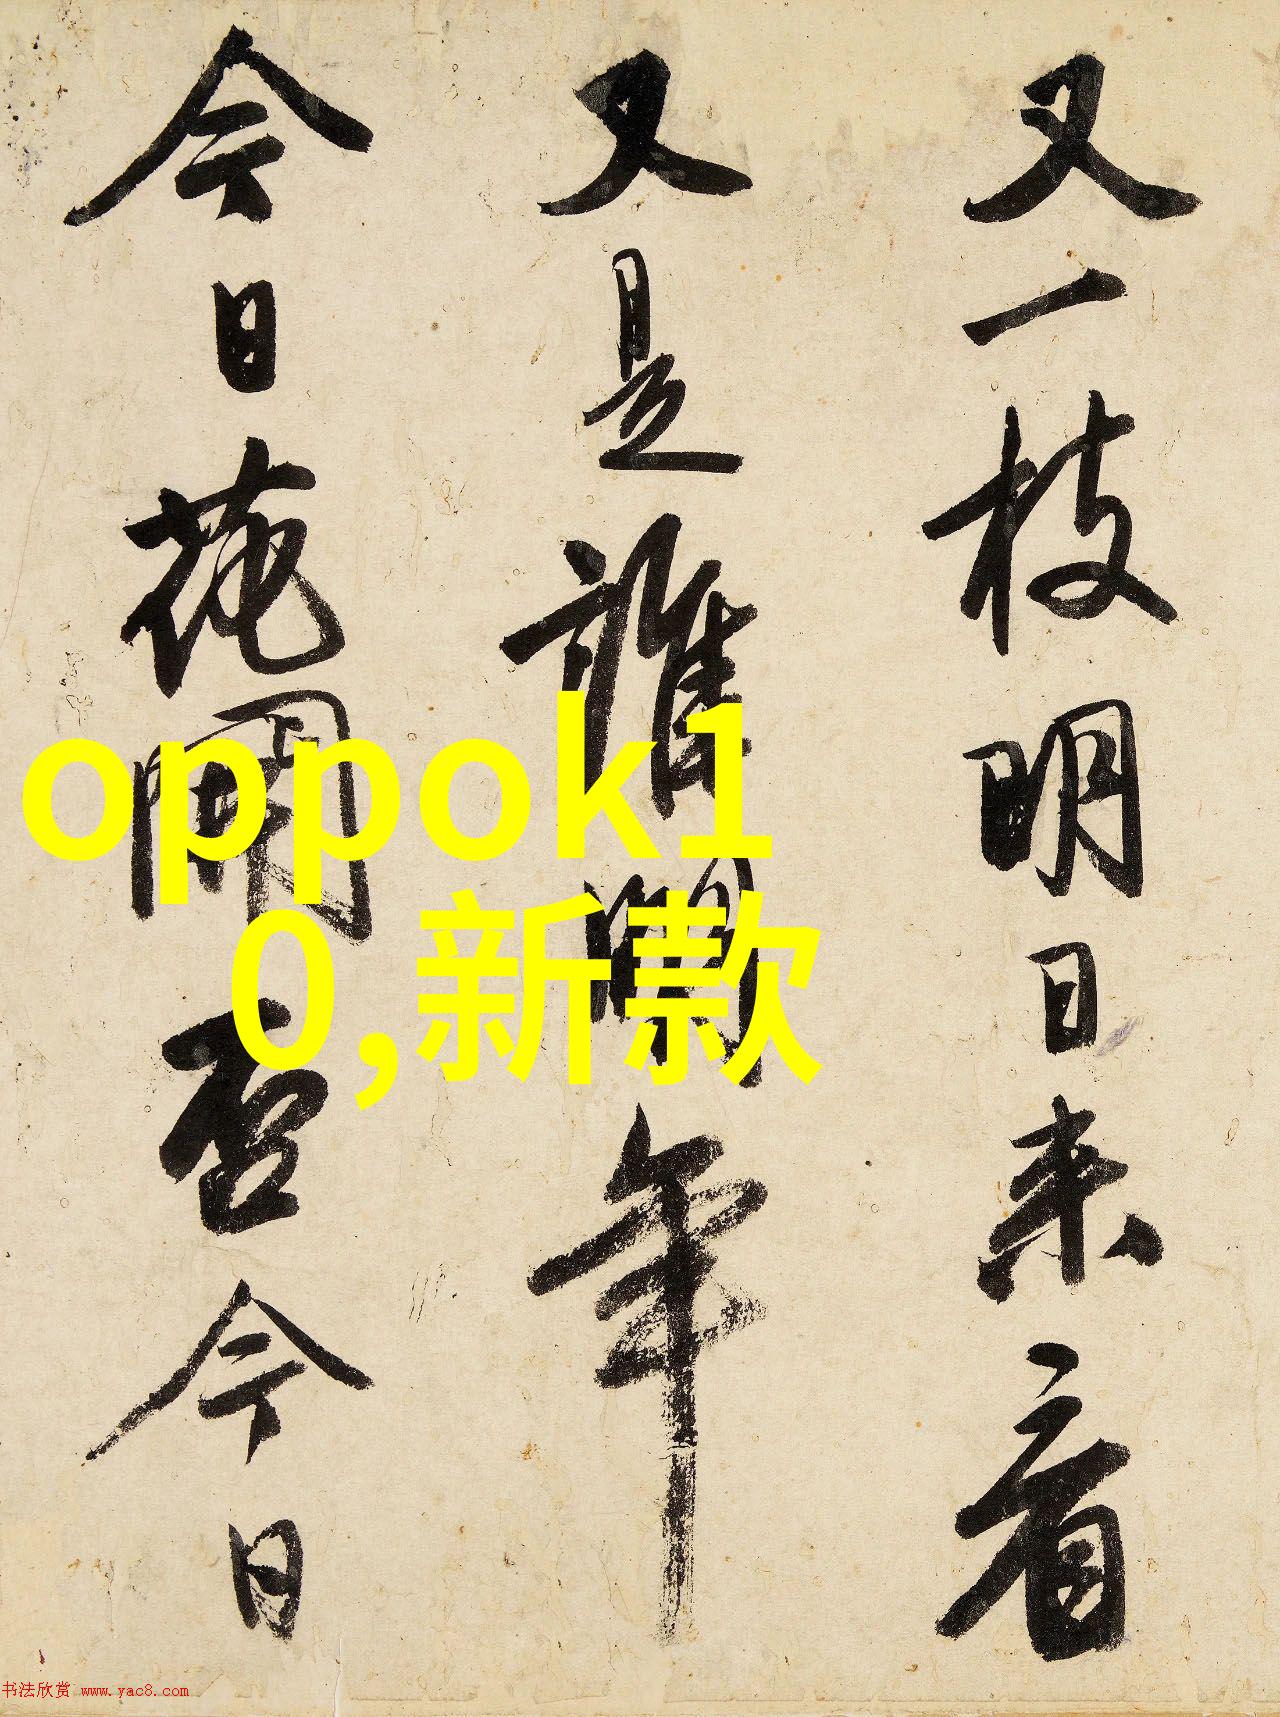 又一枝明日来看
又是誰開年
今日花開否今日
oppok1
0,新款
书法欣赏 www.yac8.com